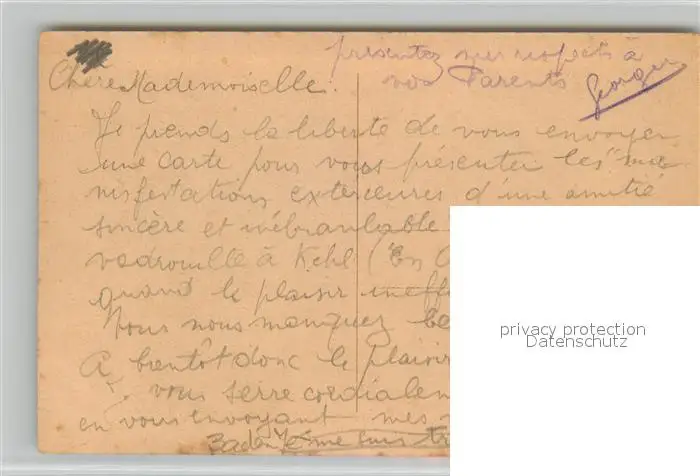 présentez mes respects à
vos Parents
Georges
Chère Mademoiselle.
Je prends la liberté de vous envoyer
une carte pour vous présenter les "ma
nifestations extérieures d'une amitié
sincère et inébranlable
vadrouille à Kehl (En
quand le plaisir
Vous nous manquez
A bientôt donc le plaisir
vous serre cordialem
en vous envoyant mes
privacy protection
Datenschutz